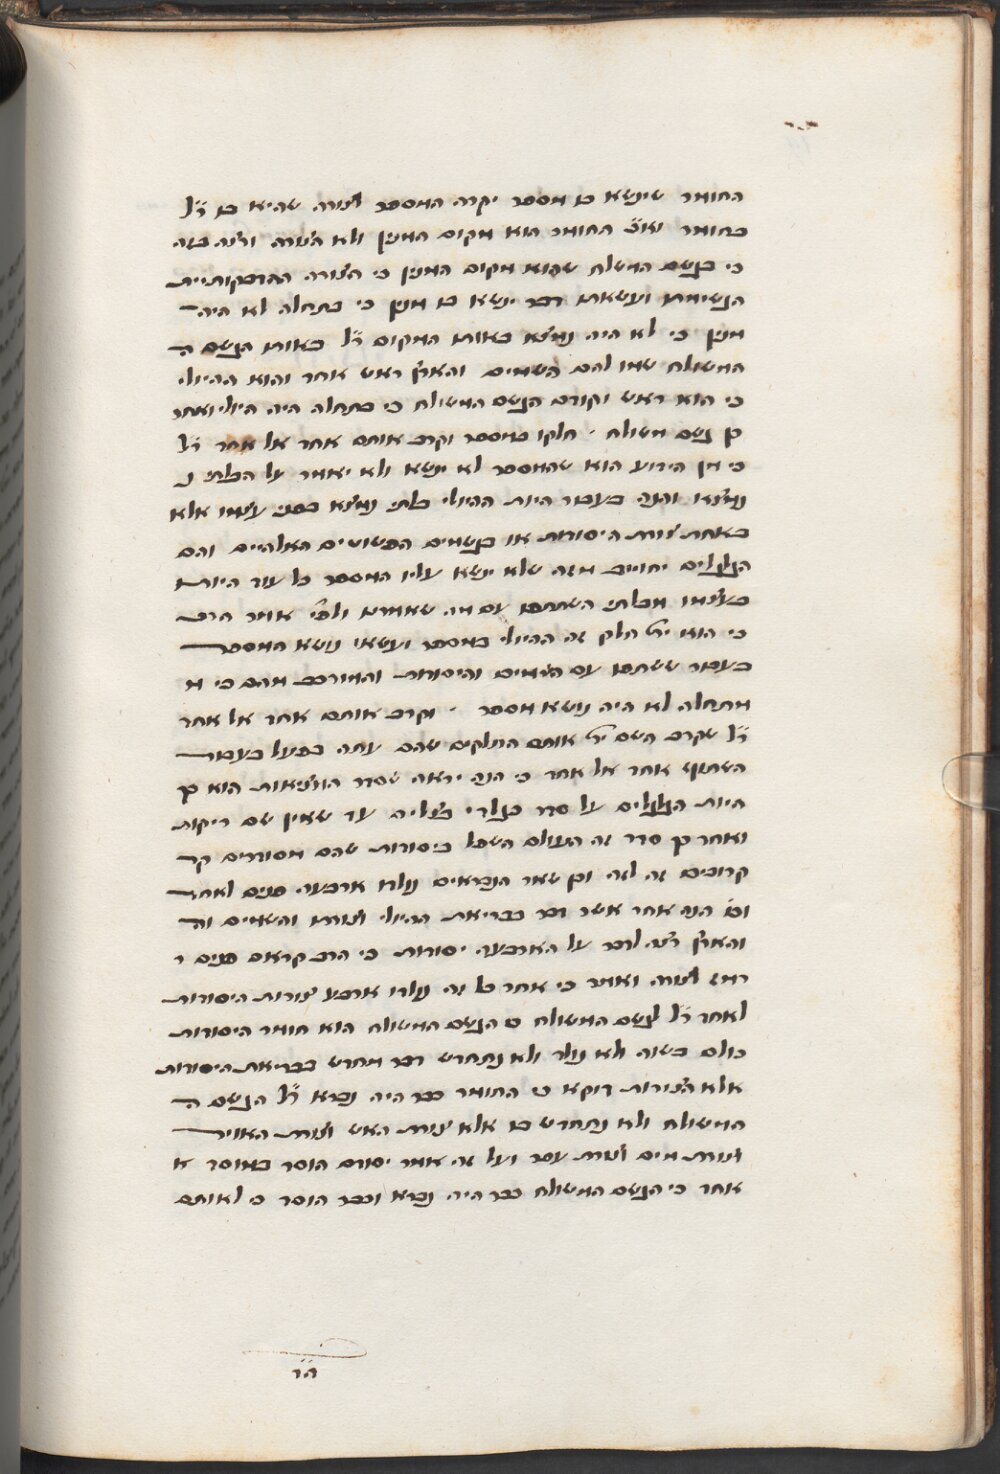 החומר שינשא בו מספר יקרה המספר לצורה שהיא בו ר״ל
בחומר ואם החומר הוא מקום המנין ולא הצורה ורצה בזה
כי בגשם המשולח שהוא מקום המנין כי הצורה הדבקותיית
הגשימתו ועשאתו דבר ינשא בו מנין כי בתחלה לא היה
מנין כי לא היה נמצא באותו המקום ר״ל באותו הגשם ה
המשולח שמו להם השמים והארץ ראש אחד והוא ההיולי
כי הוא ראש וקודם הגשם המשולח כי בתחלה היה היולי ואחר
כן גשם משולח · חלקו במספר וקרב אותם אחד אל אחד ר״ל
כי מן הידוע הוא שהמספר לא ינשא ולא יאמר על הבלתי נ
נמצא והנה בעבור היות ההיולי בלתי נמצא בפני עצמו אלא
באחת צורות היסודות או בגשמים הפשוטים האלהיים והם
הגלגלים יחוייב מזה שלא ינשא עליו המספר כל עוד היותו
בעצמו מבלתי השתתפו עם מה שאמרנו ולפי׳ אמר הרב
כי הוא ית׳ חלק זה ההיולי במספר ועשאו נושא המספר
בעבור ששתפו עם השמים והיסודות והמורכב מהם כי מ
מתחלה לא היה נושא מספר · וקרב אותם אחד אל אחד
ר״ל שקרב השם ית׳ אותם החלקים שהם עתה בפעל בעבור
השתתף אחד אל אחד כי הנה יראה שסדר המציאות הוא כן
היות הגלגלים על סדר כגלדי בצלים עד שאין שם ריקות
ואחר כן סדר זה העולם השפל ביסודות שהם מסודרים קר
קרובים זה לזה וכן שאר הנבראים נולדו ארבעה פנים לאחד
וכו׳ הנה אחר אשר דבר בבריאת ההיולי וצורתו והשמים וה
והארץ רצה לדבר על הארבעה יסודות כי הרב קראם פנים ר
רמז לצורה ואומר כי אחר כל זה נולדו ארבע צורות היסודות
לאחד ר״ל לגשם המשולח כי הגשם המשולח הוא חומר היסודות
כולם בשוה ולא נולד ולא נתחדש דבר מחדש בבריאת היסודות
אלא הצורות דוקא כי החומר כבר היה נברא ר״ל הגשם ה
המשולח ולא נתחדש בו אלא צורת האש וצורת האויר
וצורת מים וצורת עפר ועל זה אמר יסודם הוסד במוסד א
אחד כי הגשם המשולח כבר היה נברא וכבר הוסד כי לאותם